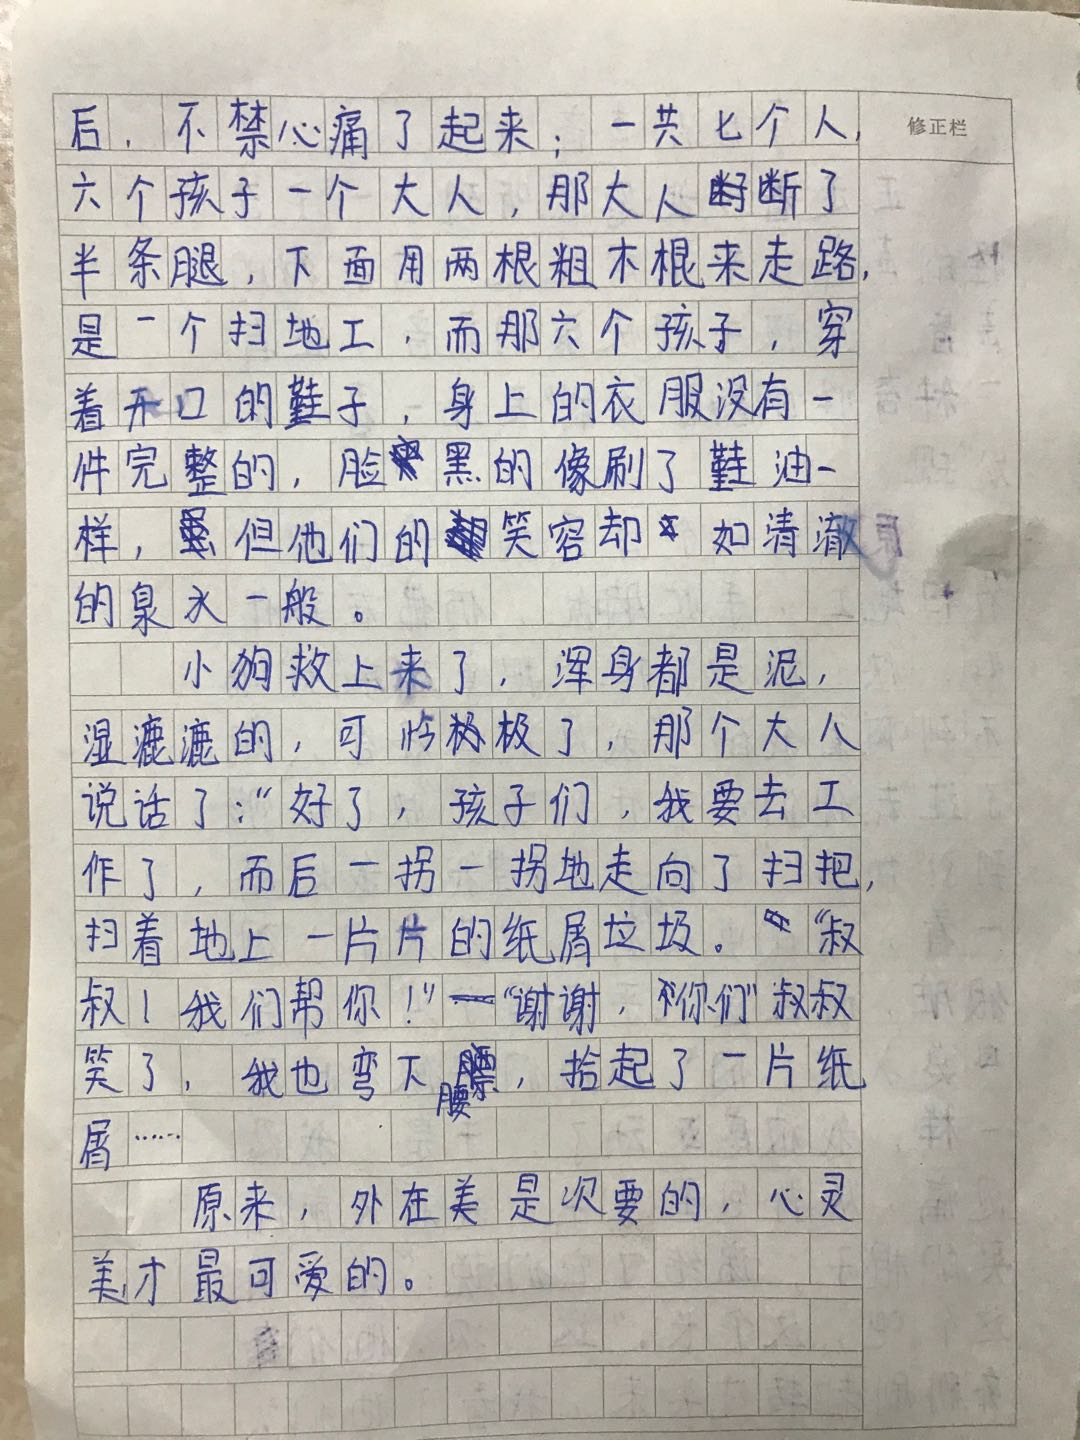 修正栏
后，不禁心痛了起来；一共七个人，
六个孩子一个大人，那大人断了
半条腿，下面用两根粗木棍来走路，
是一个扫地工，而那六个孩子，穿
着开口的鞋子，身上的衣服没有一
件完整的，脸黑的像刷了鞋油一
样，但他们的笑容却如清澈
的泉水一般。
小狗救上来了，浑身都是泥，
湿漉漉的，可怜极了，那个大人
说话了：“好了，孩子们，我要去工
作了，而后一拐一拐地走向了扫把，
扫着地上一片片的纸屑垃圾。“叔
叔！我们帮你！”“谢谢，你们”叔叔
笑了，我也弯下腰，拾起了一片纸
屑……
原来，外在美是次要的，心灵
美才最可爱的。